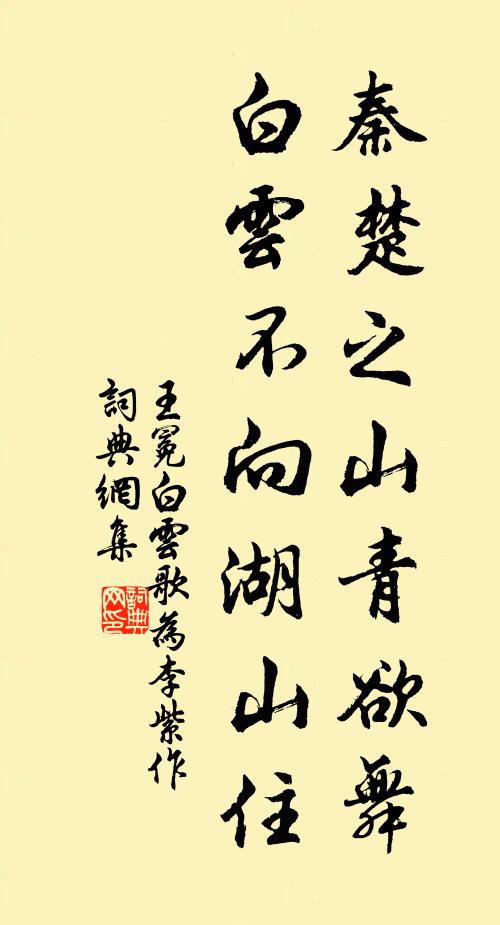 秦楚之山青欲舞
白雲不向湖山住
王冕白雲歌為李紫作
詞典網集
詞典
网印